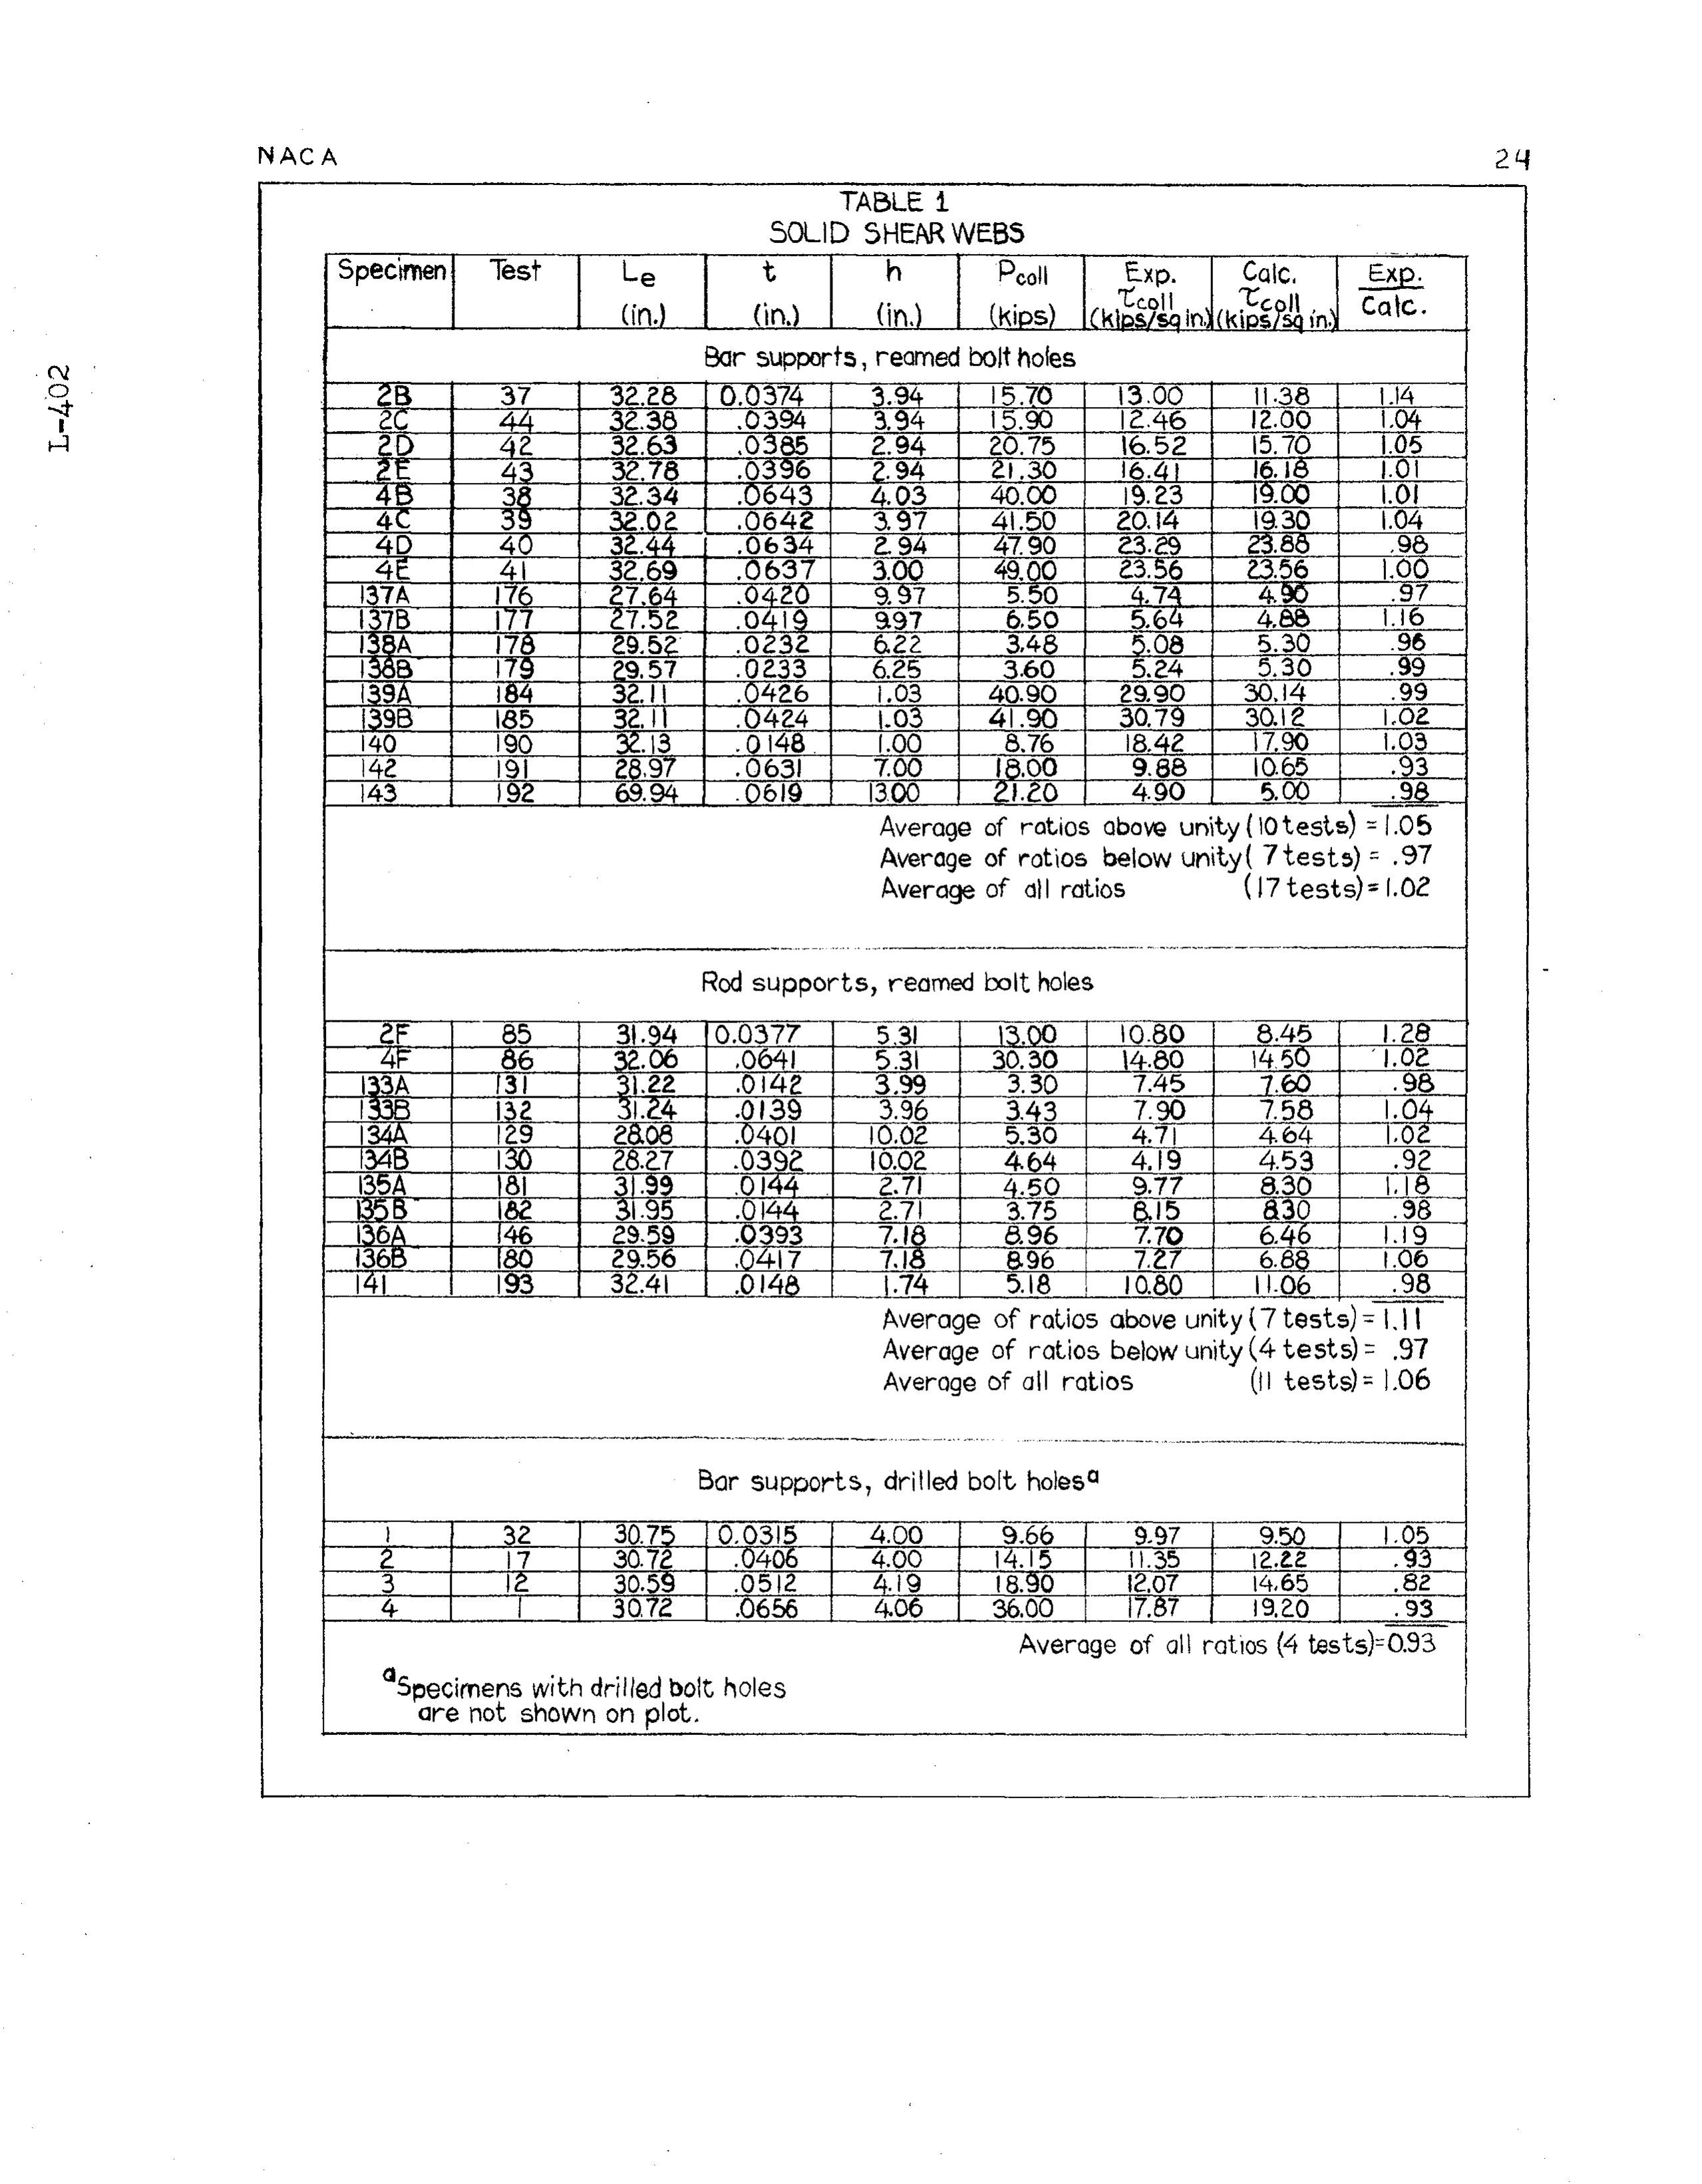 NACA 24
L-402
TABLE 1
SOLID SHEAR WEBS
Specimen Test Le (in.) t (in.) h (in.) Pcoll (kips) Exp. τcoll (kips/sq in.) Calc. τcoll (kips/sq in.) Exp. Calc.
Bar supports, reamed bolt holes
2B 37 32.28 0.0374 3.94 15.70 13.00 11.38 1.14
2C 44 32.38 .0394 3.94 15.90 12.46 12.00 1.04
2D 42 32.63 .0385 2.94 20.75 16.52 15.70 1.05
2E 43 32.78 .0396 2.94 21.30 16.41 16.18 1.01
4B 38 32.34 .0643 4.03 40.00 19.23 19.00 1.01
4C 39 32.02 .0642 3.97 41.50 20.14 19.30 1.04
4D 40 32.44 .0634 2.94 47.90 23.29 23.88 .98
4E 41 32.69 .0637 3.00 49.00 23.56 23.56 1.00
137A 176 27.64 .0420 9.97 5.50 4.74 4.90 .97
137B 177 27.52 .0419 9.97 6.50 5.64 4.88 1.16
138A 178 29.52 .0232 6.22 3.48 5.08 5.30 .96
138B 179 29.57 .0233 6.25 3.60 5.24 5.30 .99
139A 184 32.11 .0426 1.03 40.90 29.90 30.14 .99
139B 185 32.11 .0424 1.03 41.90 30.79 30.12 1.02
140 190 32.13 .0148 1.00 8.76 18.42 17.90 1.03
142 191 28.97 .0631 7.00 18.00 9.88 10.65 .93
143 192 69.94 .0619 13.00 21.20 4.90 5.00 .98
Average of ratios above unity (10 tests) = 1.05
Average of ratios below unity ( 7 tests) = .97
Average of all ratios (17 tests) = 1.02
Rod supports, reamed bolt holes
2F 85 31.94 0.0377 5.31 13.00 10.80 8.45 1.28
4F 86 32.06 .0641 5.31 30.30 14.80 14.50 1.02
133A 131 31.22 .0142 3.99 3.30 7.45 7.60 .98
133B 132 31.24 .0139 3.96 3.43 7.90 7.58 1.04
134A 129 28.08 .0401 10.02 5.30 4.71 4.64 1.02
134B 130 28.27 .0392 10.02 4.64 4.19 4.53 .92
135A 181 31.99 .0144 2.71 4.50 9.77 8.30 1.18
135B 182 31.95 .0144 2.71 3.75 8.15 8.30 .98
136A 146 29.59 .0393 7.18 8.96 7.70 6.46 1.19
136B 180 29.56 .0417 7.18 8.96 7.27 6.88 1.06
141 193 32.41 .0148 1.74 5.18 10.80 11.06 .98
Average of ratios above unity (7 tests) = 1.11
Average of ratios below unity (4 tests) = .97
Average of all ratios (11 tests) = 1.06
Bar supports, drilled bolt holesa
1 32 30.75 0.0315 4.00 9.66 9.97 9.50 1.05
2 17 30.72 .0406 4.00 14.15 11.35 12.22 .93
3 12 30.59 .0512 4.19 18.90 12.07 14.65 .82
4 1 30.72 .0656 4.06 36.00 17.87 19.20 .93
Average of all ratios (4 tests)=0.93
aSpecimens with drilled bolt holes
are not shown on plot.